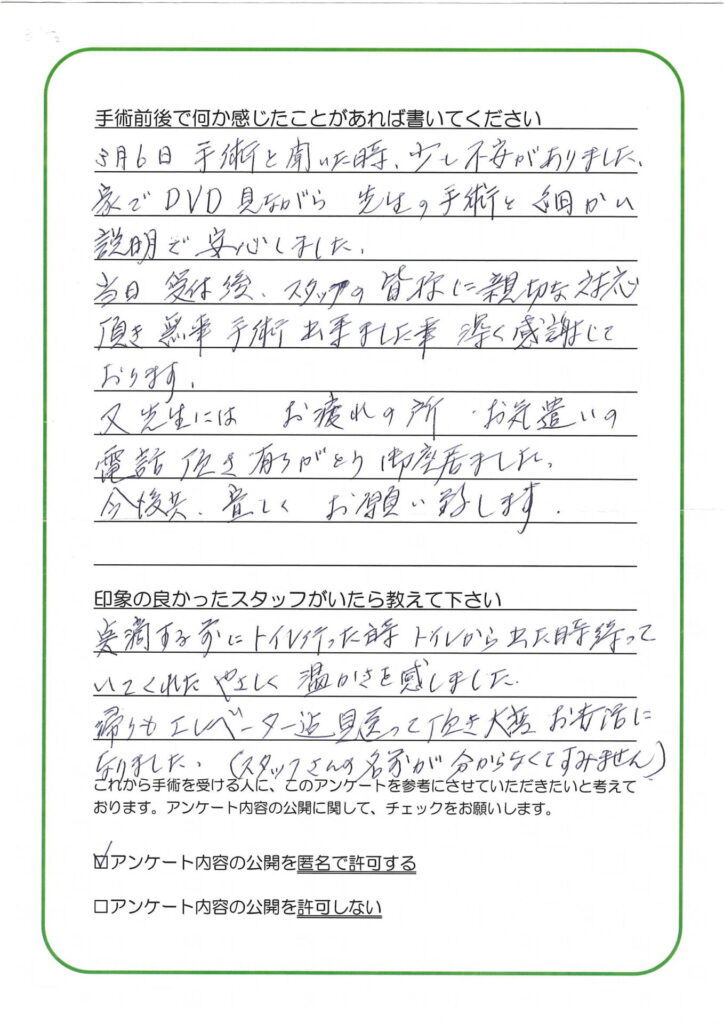 手術前後で何か感じたことがあれば書いてください
3月6日 手術と聞いた時、少し不安がありました、
家でDVD見ながら 先生の手術と細かい
説明で安心しました、
当日 受付後、スタッフの皆様に親切な対応
頂き無事手術出来ました事 深く感謝して
おります、
又先生には お疲れの所 お気遣いの
電話頂き有りがとう御座居ました、
今後共、宜しく お願い致します.
印象の良かったスタッフがいたら教えて下さい
点滴する前にトイレ行った時 トイレから出た時待って
いてくれた やさしく 温かさを感じました.
帰りもエレベーター迄見送って頂き大変 お世話に
なりました.(スタッフさんの名前が分からなくてすみません)
これから手術を受ける人に、このアンケートを参考にさせていただきたいと考えて
おります。アンケート内容の公開に関して、チェックをお願いします。
☑アンケート内容の公開を匿名で許可する
□アンケート内容の公開を許可しない